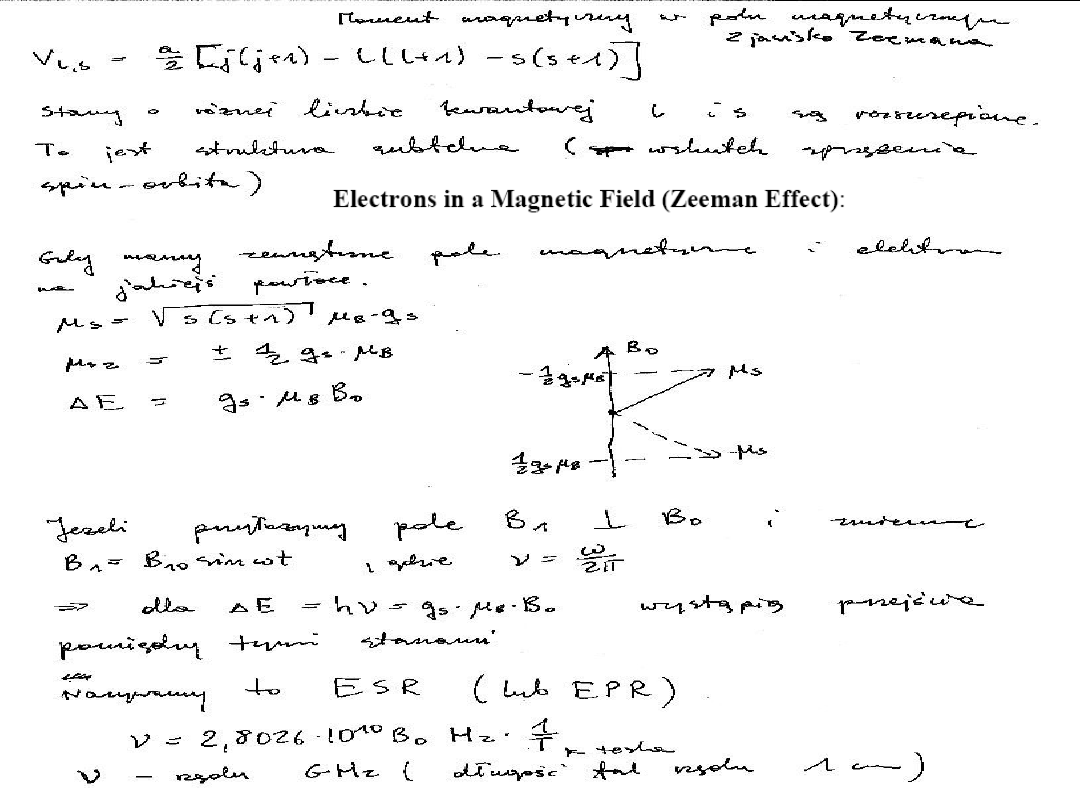 Moment magnetyczny w polu magnetycznym
Zjawisko Zeemana
V_{l,s} = a/2 [j(j+1) - l(l+1) - s(s+1)]
Stany o różnej liczbie kwantowej l i s są rozszczepione.
To jest struktura subtelna ( wskutek sprzężenia
spin-orbita)
Electrons in a Magnetic Field (Zeeman Effect):
Gdy mamy zewnętrzne pole magnetyczne i elektron
na jakiejś powłoce.
μ_s = √(s(s+1)) μ_B · g_s
μ_{sz} = ± 1/2 g_s · μ_B
ΔE = g_s · μ_B B_0
B_0
-1/2 g_s μ_B
μ_s
1/2 g_s μ_B
μ_s
Jeżeli przyłożymy pole B_1 ⊥ B_0 i zmienne
B_1 = B_{10} sin ωt , gdzie ν = ω/2π
=> dla ΔE = hν = g_s · μ_B · B_0 wystąpią przejścia
pomiędzy tymi stanami
Nazywamy to ESR (lub EPR)
ν = 2,8026 · 10^{10} B_0 Hz · 1/T
tesla
ν - rzędu GHz (długość fal rzędu 1 cm)